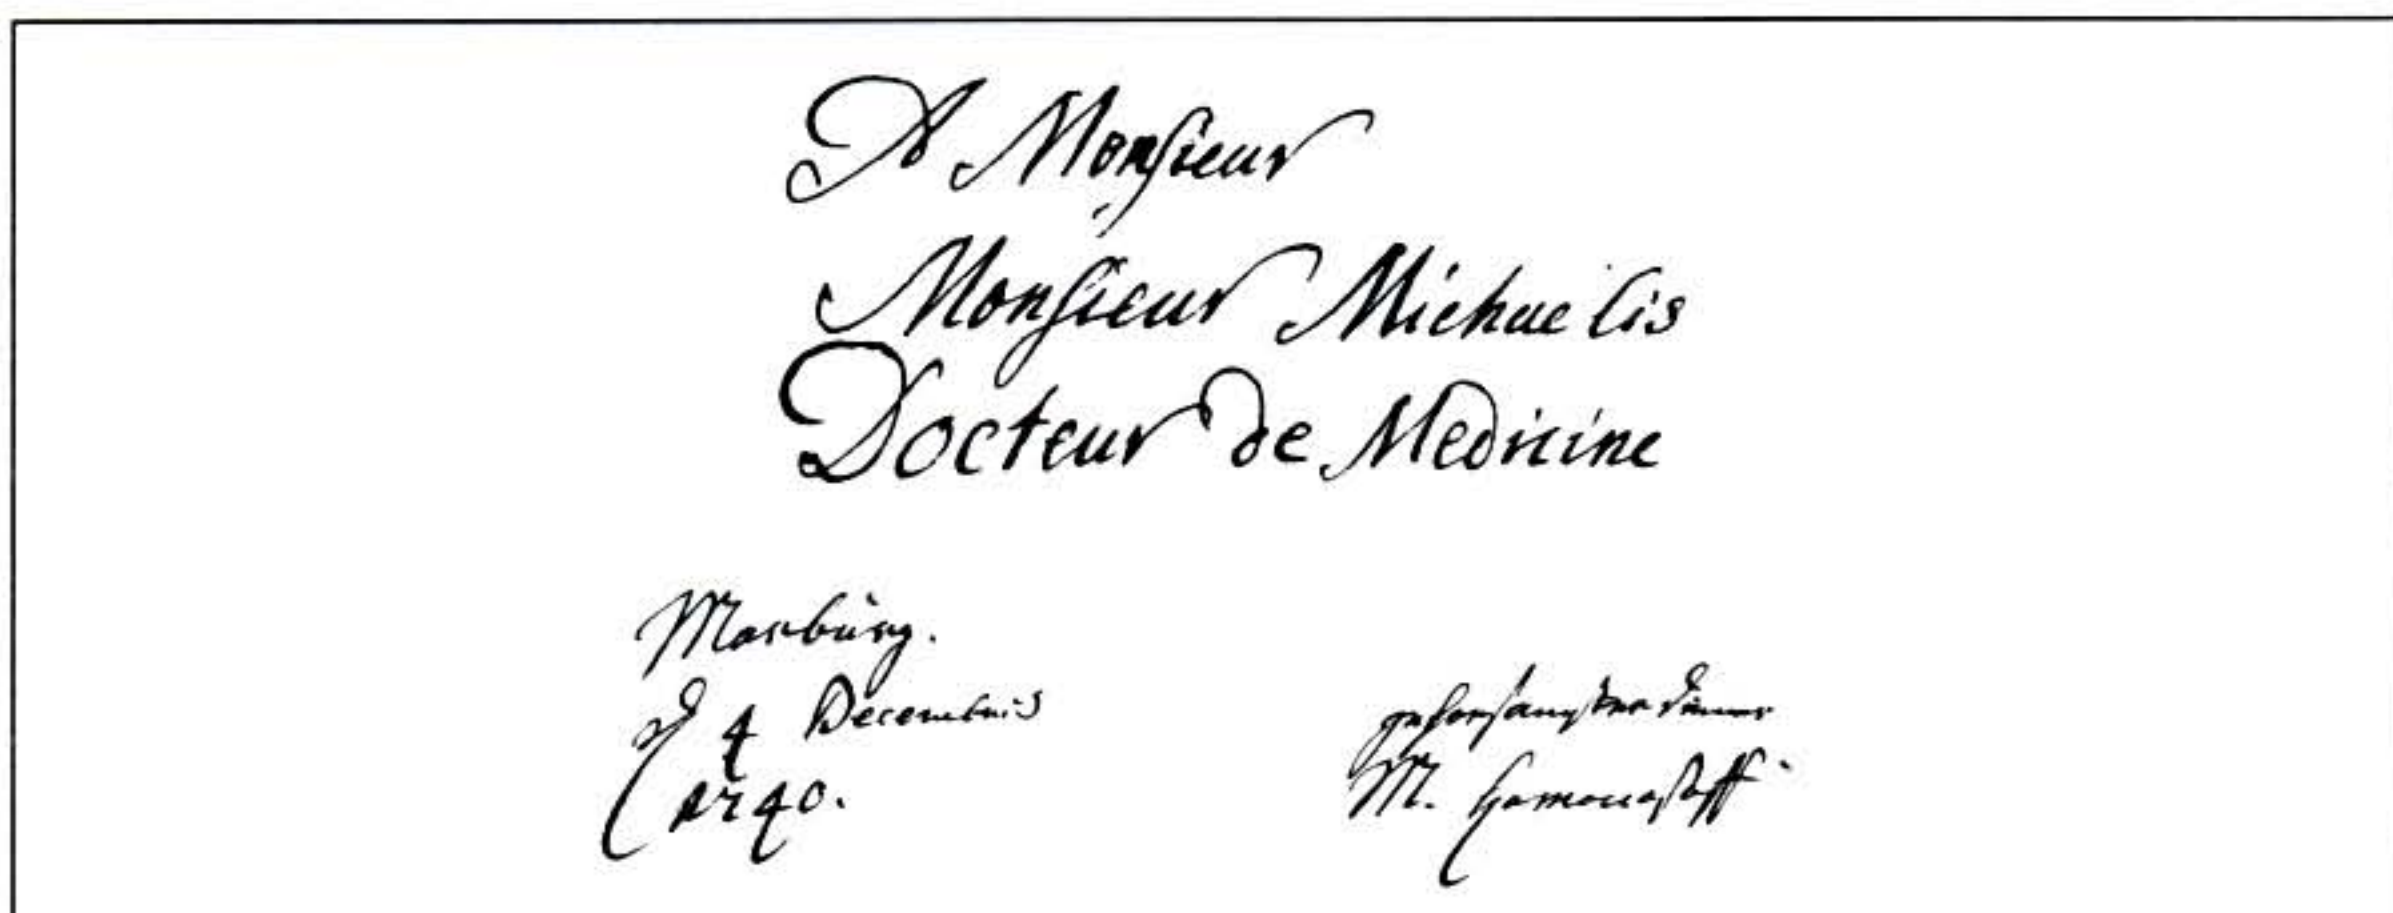 A Monsieur
Monsieur Michaelis
Docteur de Medicine
Marburg.
d 4 Decembris
1740.
gehorsamster diener
M. Lomonosoff